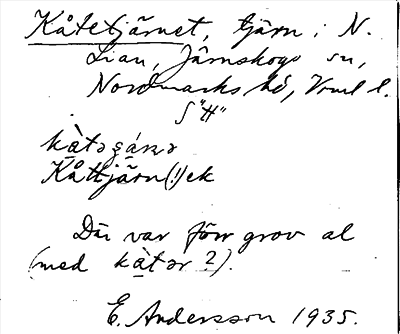 Kåtetjärnet, tjärn i N.
Lian, Järnskogs sn,
Nordmarks hd, Vrml l.
S "H"
kàtəʂánə
Kåttjärn(!) ek
Där var förr grov al
(med kàtər ?).
E. Andersson 1935.